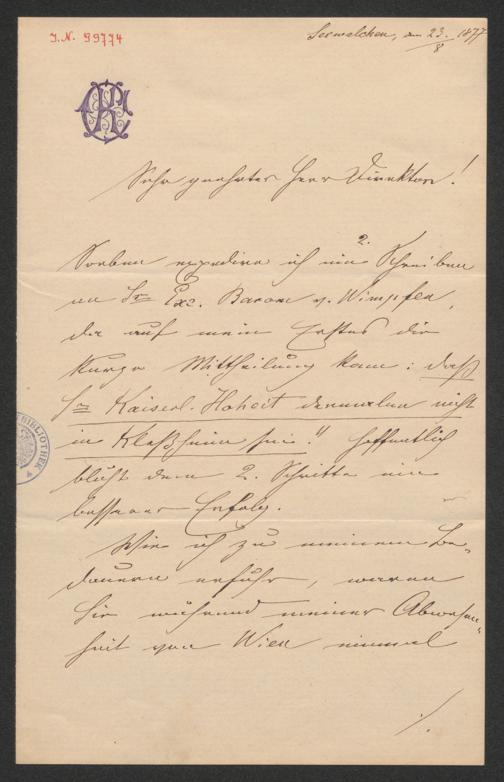 J.N. 99774
Seewalchen, den 23./8 1877
Sehr geehrter Herr Direktor!
Soeben expedire ich ein 2. Schreiben
an Sr Exc. Baron v. Wimpfen,
da auf mein Erstes die
kurze Mittheilung kam: „daß
Sr Kaiserl. Hoheit dermalen nicht
in Kleßheim sei." Hoffentlich
blüht dem 2. Schritte ein
besserer Erfolg.
Wie ich zu meinem Be-
dauern erfuhr, waren
Sie während meiner Abwesen-
heit von Wien einmal
./.
BIBLIOTHEK